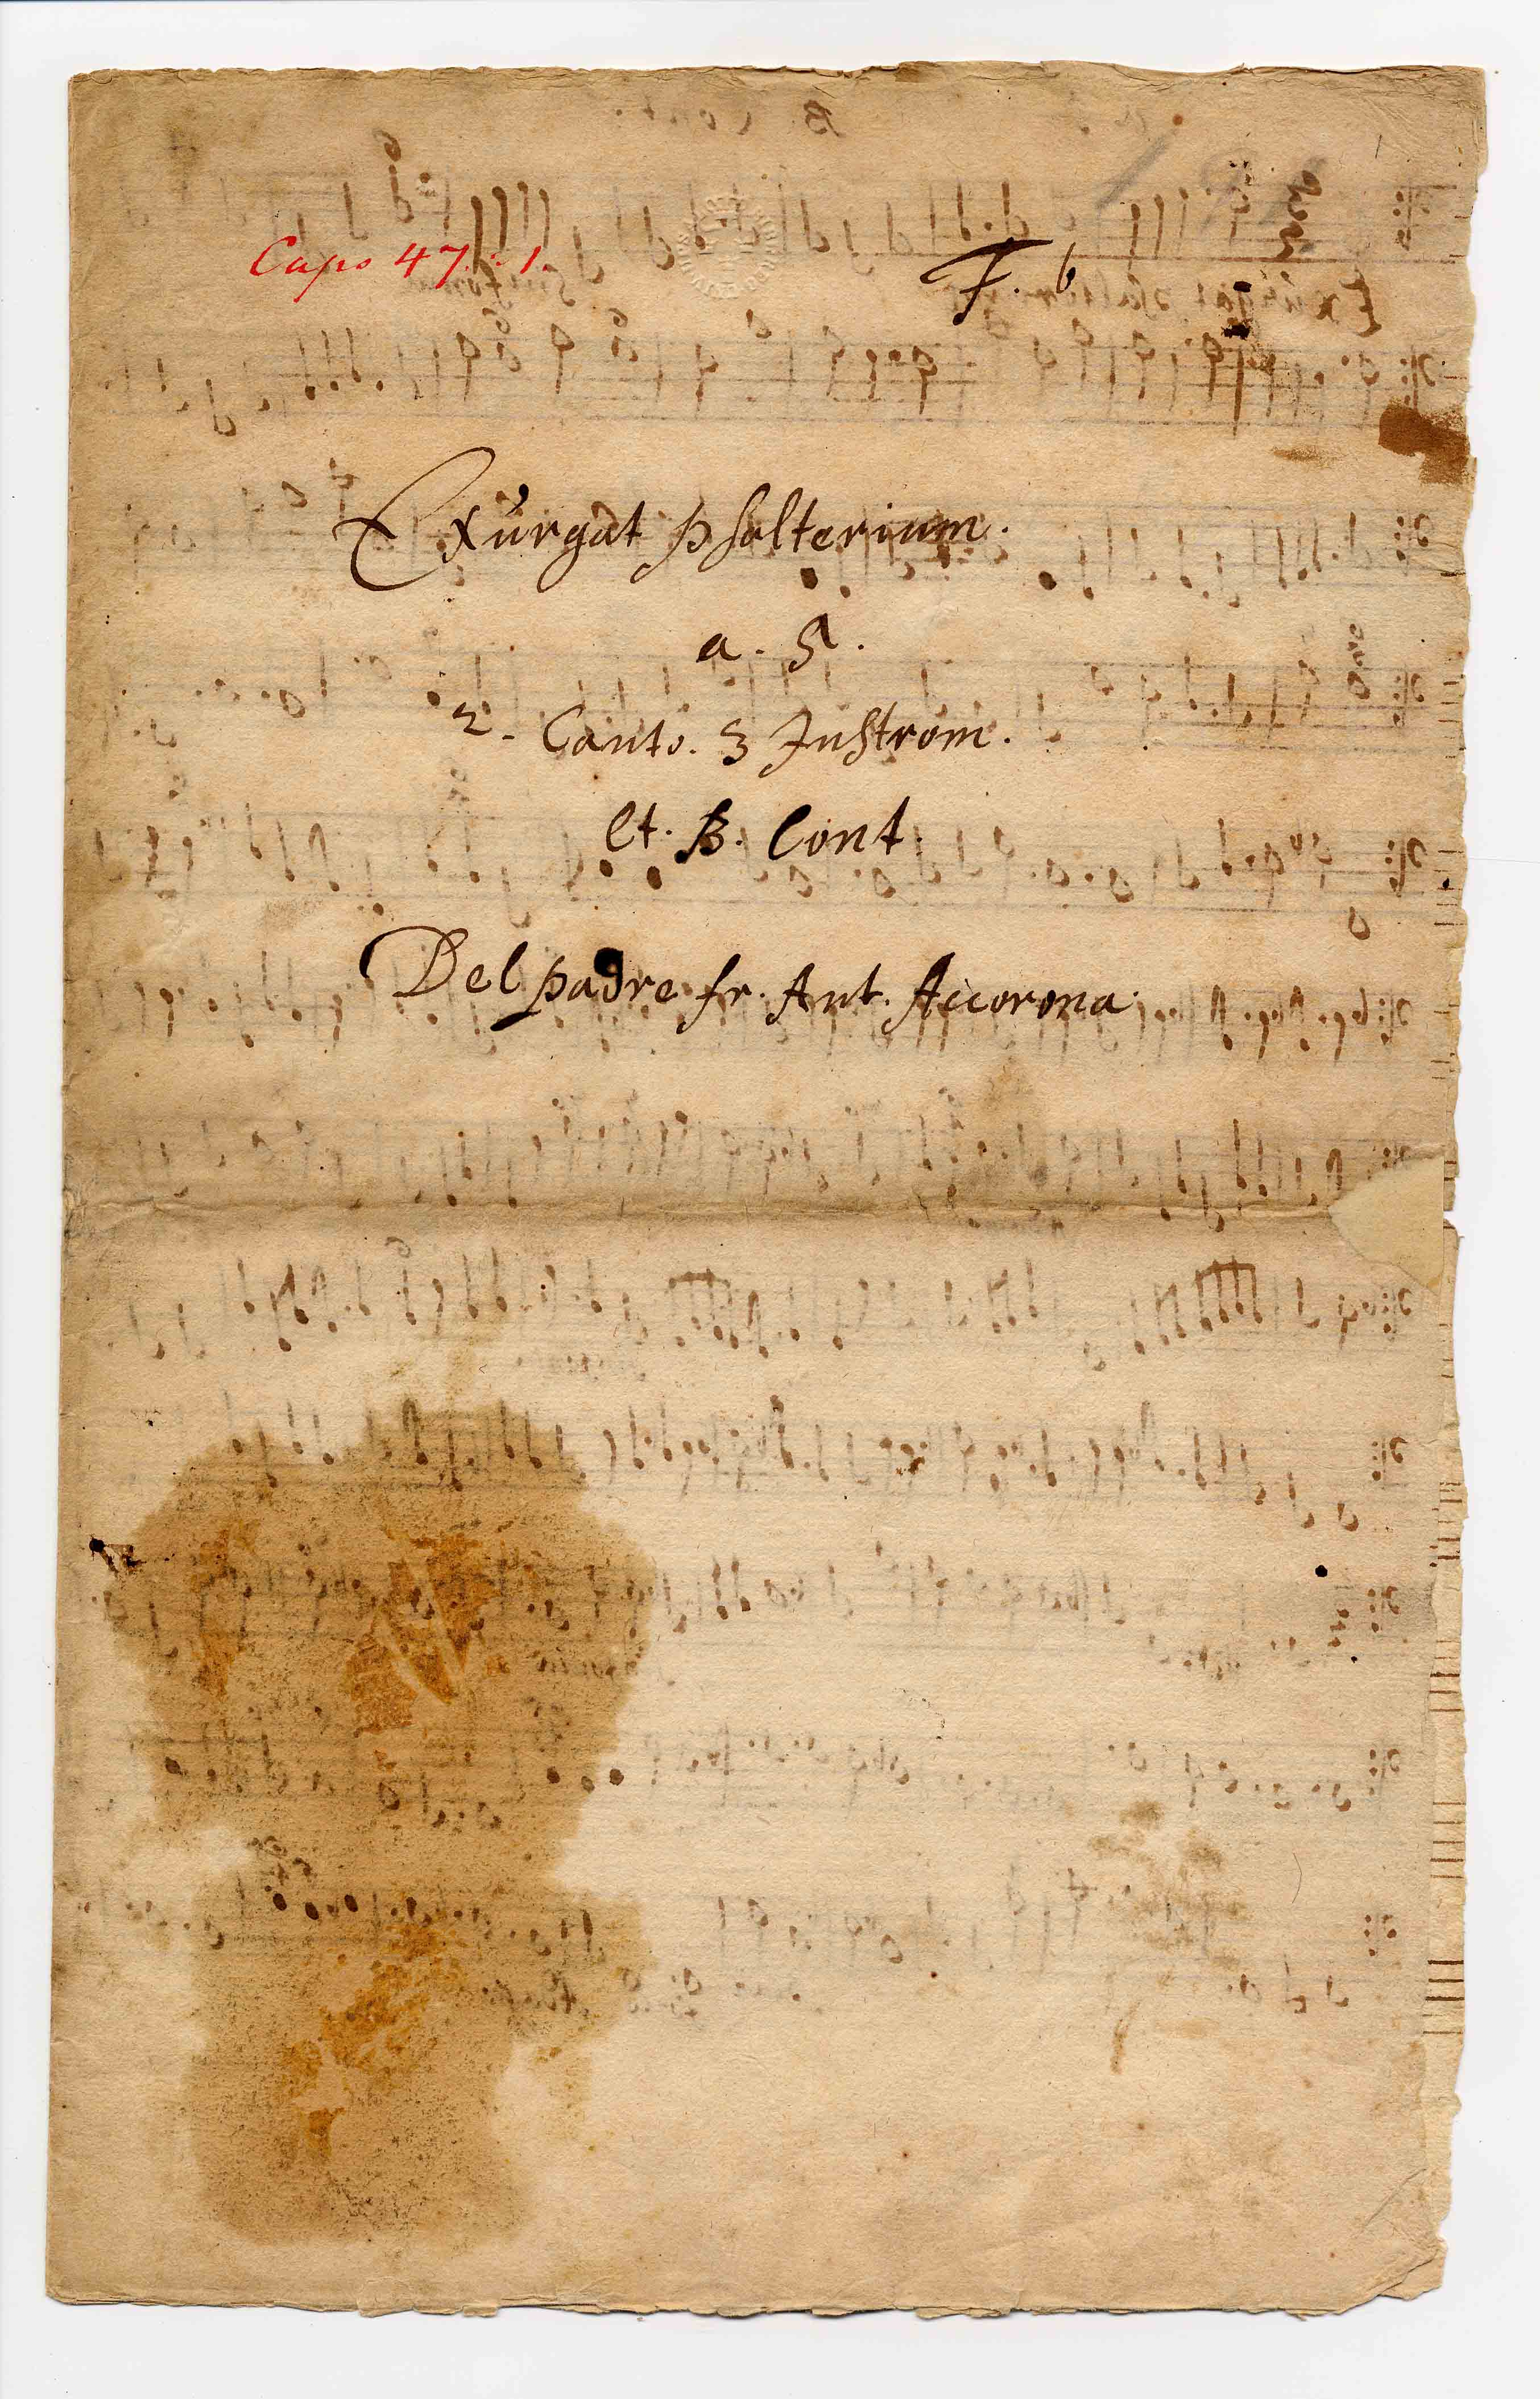 Caps 47:1.
F. b
Exŭrgat psalterium.
a. 5.
2. Canto. 3 Instrom.
et. B. Cont.
Del padre fr. Ant. Accorona.